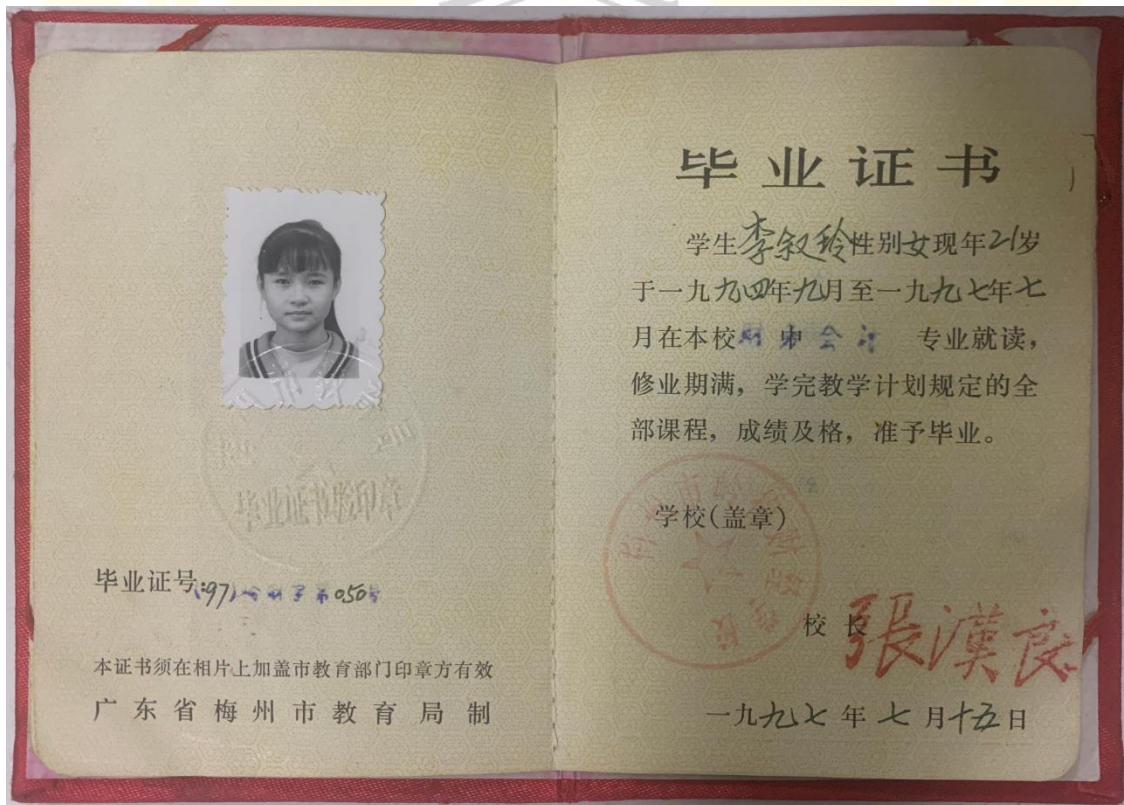 毕业证号:(97)字第050号
本证书须在相片上加盖市教育部门印章方有效
广东省梅州市教育局制
毕业证书验印章
毕业证书
学生李叙玲性别女现年21岁
于一九九四年九月至一九九七年七
月在本校财申会计 专业就读,
修业期满,学完教学计划规定的全
部课程,成绩及格,准予毕业。
学校(盖章)
校长 張漢良
一九九七年七月十五日